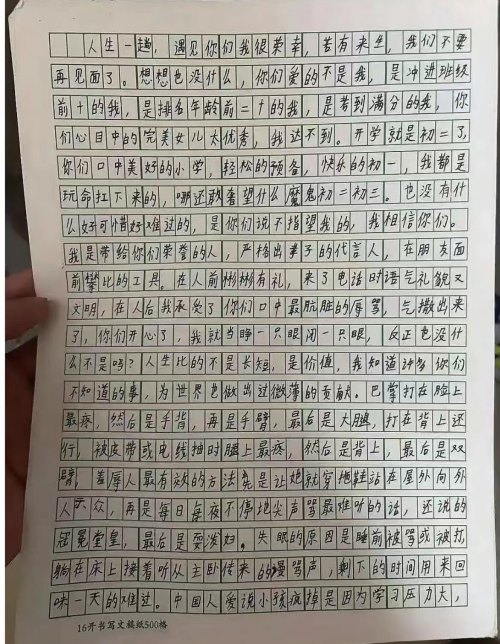 人生一趟，遇见你们我很荣幸，若有来生，我们不要
再见面了。想想也没什么，你们爱的不是我，是冲进班级
前十的我，是排名年龄前二十的我，是考到满分的我，你
们心目中的完美女儿太优秀，我达不到。开学就是初二了，
你们口中美好的小学，轻松的预备，快乐的初一，我都是
玩命扛下来的，哪还敢奢望什么魔鬼初二初三。也没有什
么好可惜好难过的，是你们说不指望我的，我相信你们。
我是带给你们荣誉的人，严格出事子的代言人，在朋友面
前攀比的工具。在人前彬彬有礼，来了电话时语气礼貌又
文明，在人后我承受了你们口中最肮脏的辱骂，气撒出来
了，你们开心了，我就当睁一只眼闭一只眼，反正也没什
么不是吗？人生比的不是长短，是价值，我知道许多你们
不知道的事，为世界也做出过微薄的贡献。巴掌打在脸上
最疼，然后是手背，再是手臂，最后是大腿，打在背上还
行，被皮带或电线抽时腿上最疼，然后是背上，最后是双
臂，羞辱人最有效的方法先是让她就穿拖鞋站在屋外向外
人示众，再是每日每夜不停地尖声骂最难听的话，还说的
冠冕堂皇，最后是耍发妇。失眠的原因是睡前被骂或被打，
躺在床上接着听从主卧传来的谩骂声，剩下的时间用来回
味一天的难过。中国人爱说小孩疯掉是因为学习压力大，
16开书写文稿纸500格